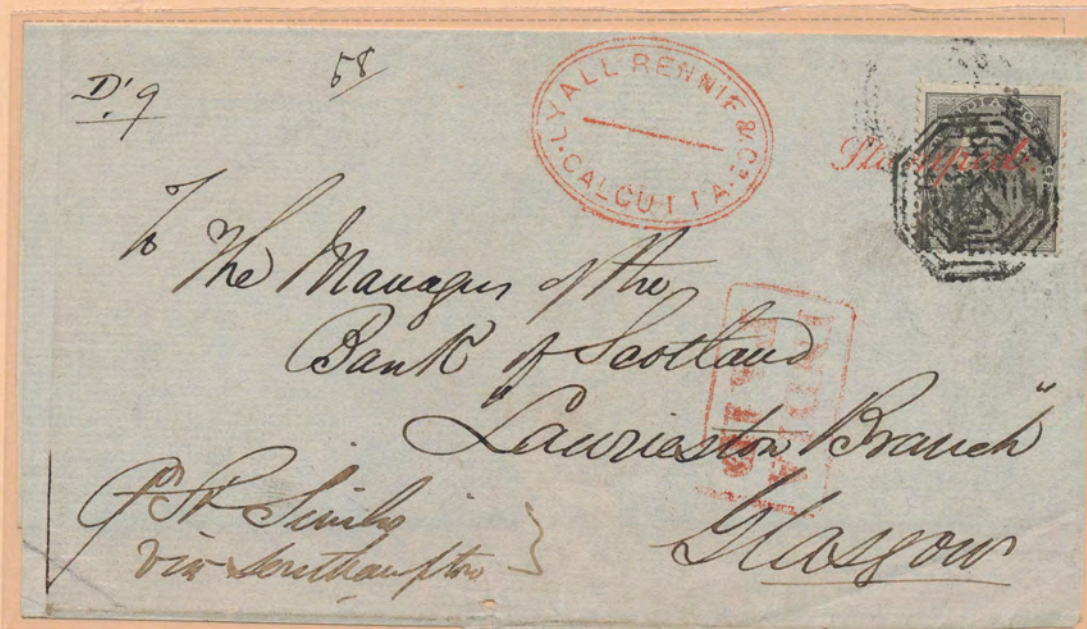 D'9
58
LYALL RENNIE & Co.
CALCUTTA.
Stamped.
INDIA
PAID
To
The Manager of the
Bank of Scotland
"Laurieston Branch"
Glasgow
Pr Str Simla
via Southampton